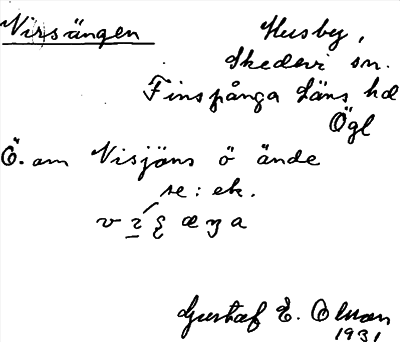 Virsängen
Husby,
Skedevi sn.
Finspånga läns hd
Ögl
Ö. om Visjöns ö ände
se: ek.
Gustaf E. Olson
1931